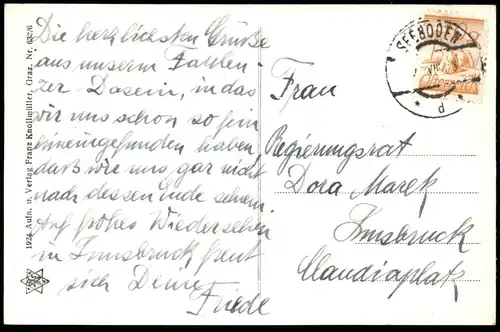 Die herzlichsten Grüße
aus unserem Faulen-
zer-Dasein, in das
wir uns schon so fein
hineingefunden haben
daß wir uns gar nicht
nach dessen Ende sehnen.
Auf frohes Wiedersehen
in Innsbruck freut
sich Deine
Friede
Frau
Regierungsrat
Dora Marek
Innsbruck
Claudiaplatz
SEEBODEN
d
1924 Aufn. u. Verlag Franz Knollmüller, Graz. Nr.